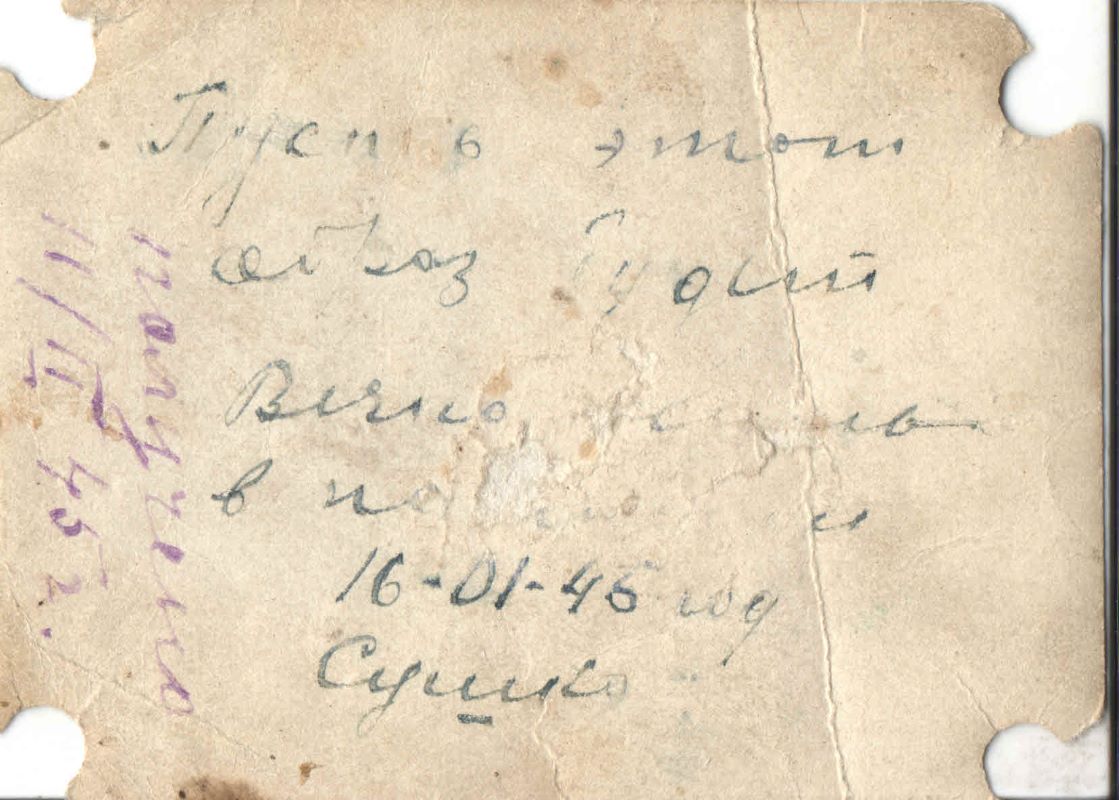 Пусть этот
образ будет
Вечно, жить
в памяти
16-01-45 год
Сушко
получено
11/II 45 г.